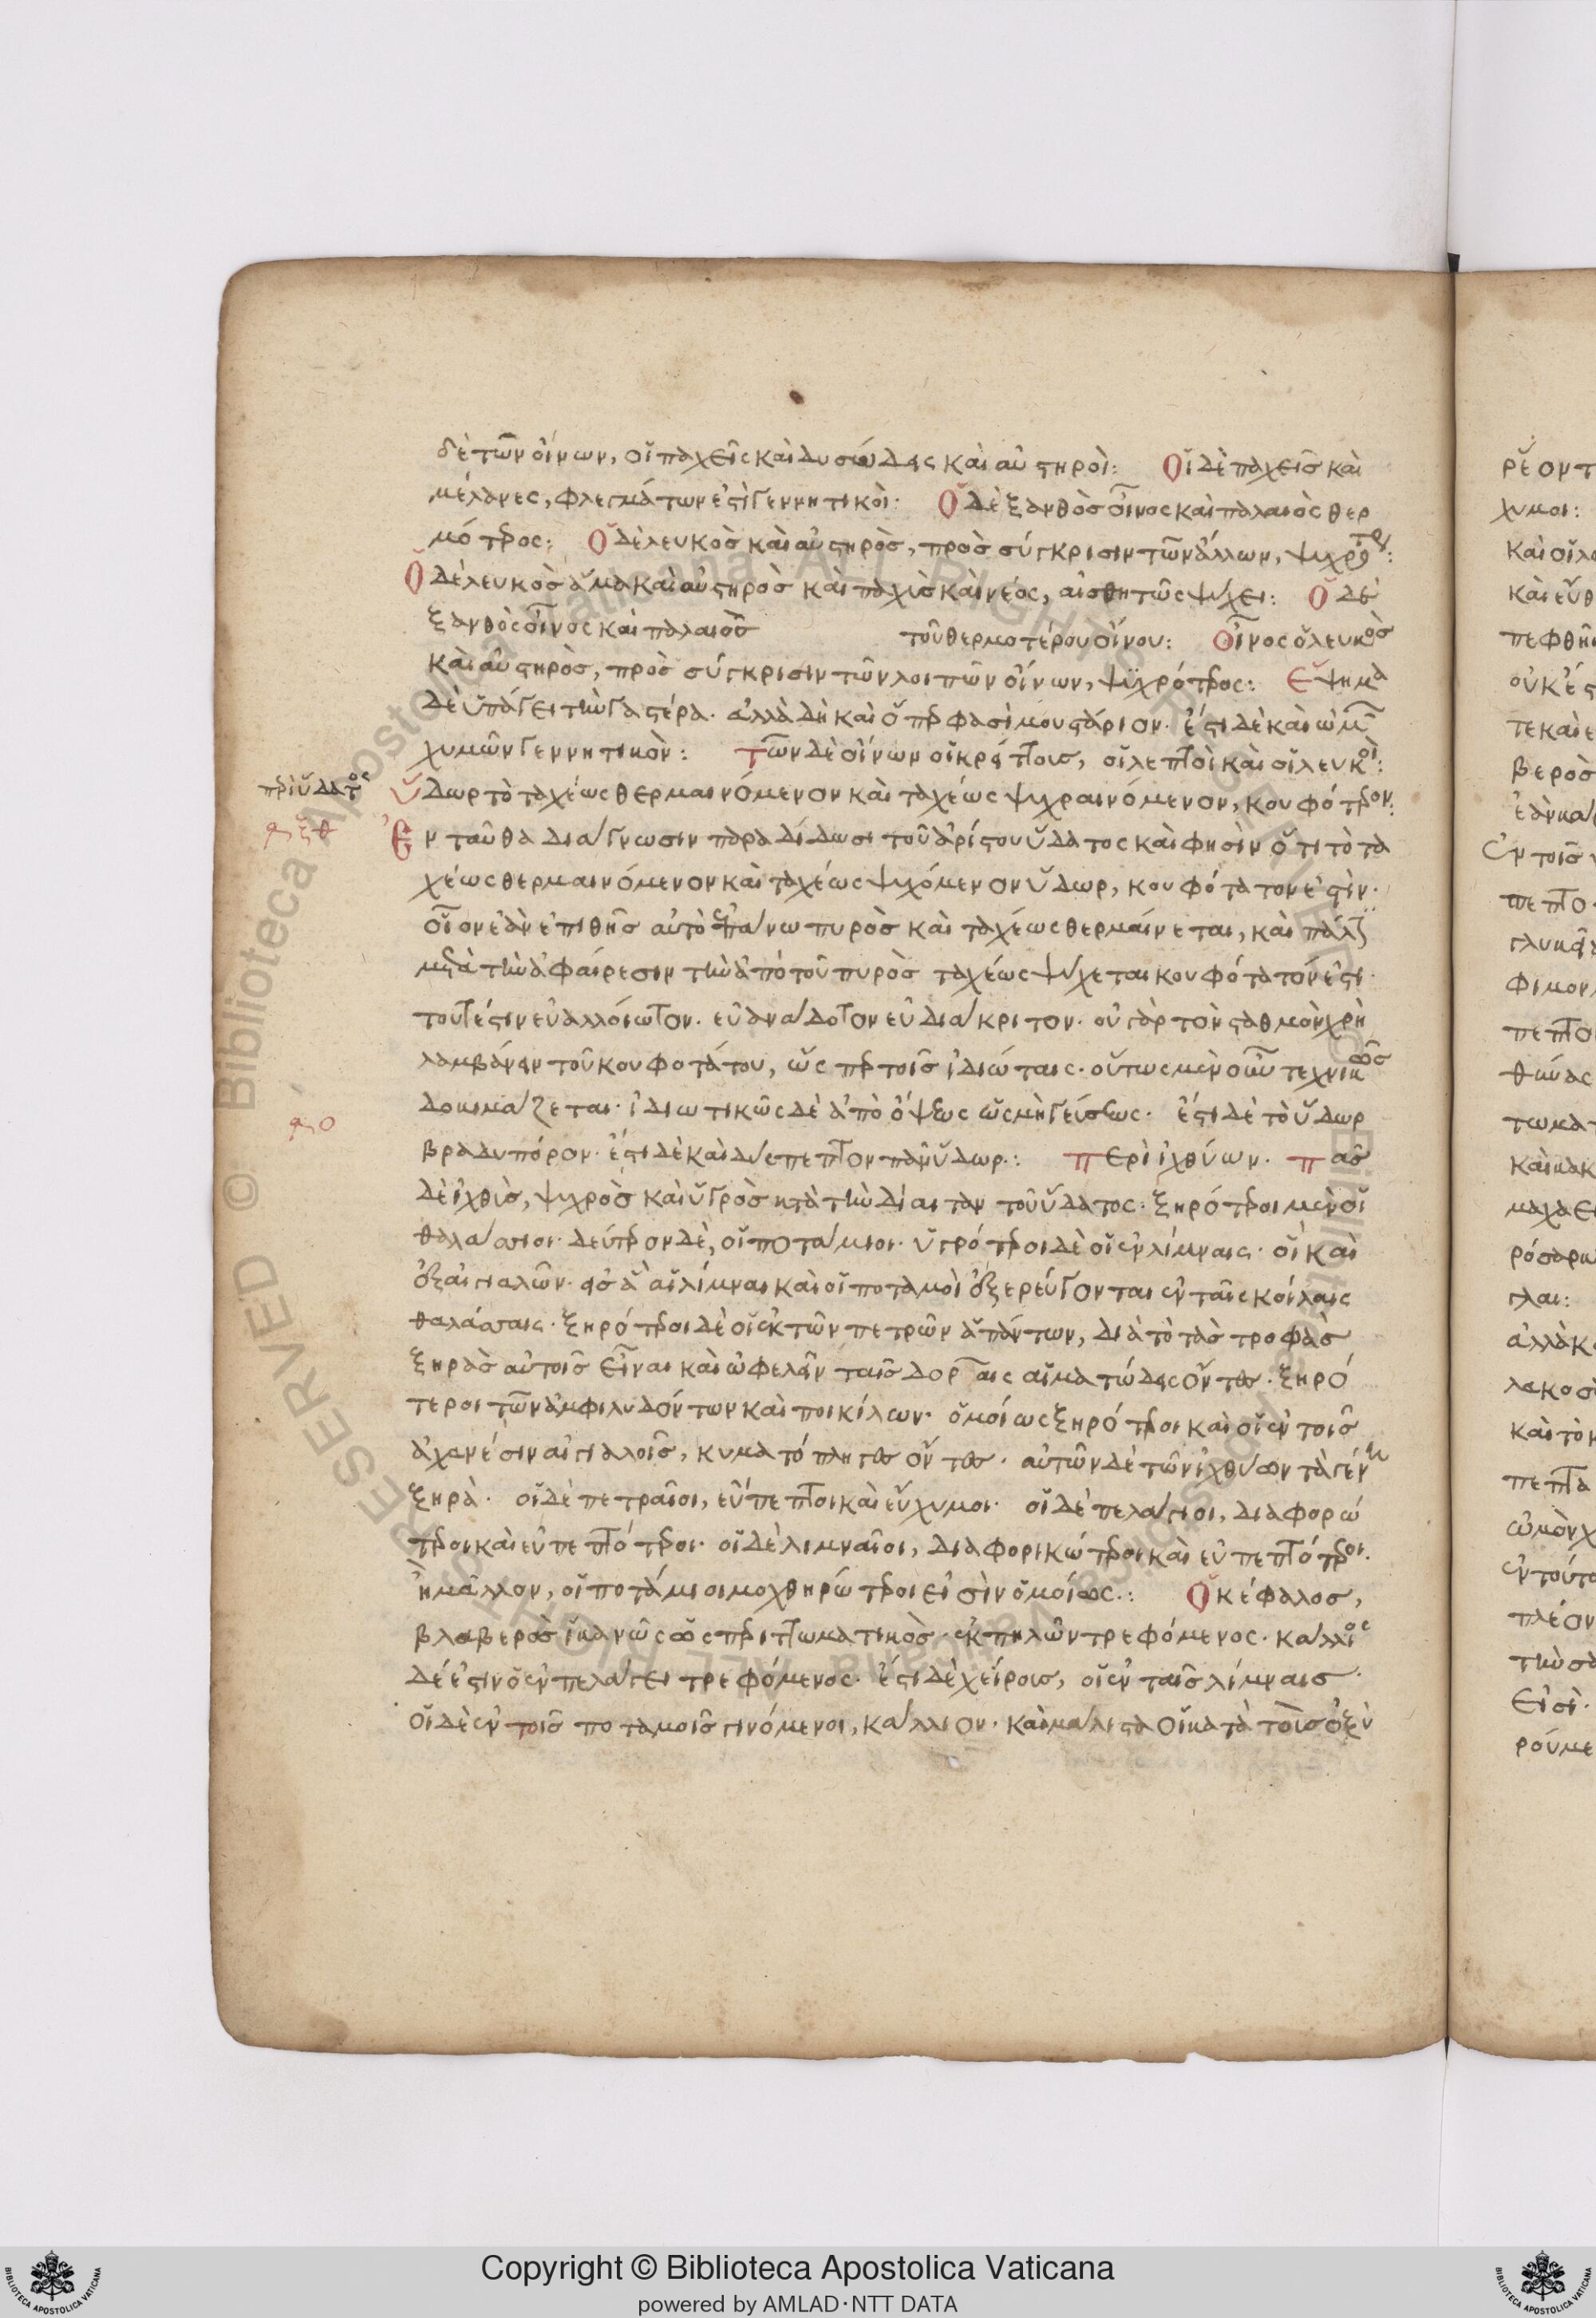 δὲ τῶν οἴνων, οἱ παχεῖς καὶ δυσώδεις καὶ αὐστηροί: Οἱ δὲ παχεῖς καὶ
μέλανες, φλεγμάτων ἐστὶ γεννητικοί· Ὁ δὲ ξανθὸς οἶνος καὶ παλαιὸς θερ
μότερος: Ὁ δὲ λευκὸς καὶ αὐστηρὸς, πρὸς σύγκρισιν τῶν ἄλλων, ψυχρότερος:
Ὁ δὲ λευκὸς ἅμα καὶ αὐστηρὸς καὶ παχὺς καὶ νέος, αἰσθητῶς ψύχει: Ὁ δὲ
ξανθὸς οἶνος καὶ παλαιὸς τοῦ θερμοτέρου οἴνου: Οἶνος ὁ λευκὸς
καὶ αὐστηρὸς, πρὸς σύγκρισιν τῶν λοιπῶν οἴνων, ψυχρότερος: Ἕψημα
δὲ ὑπάγει τὴν γαστέρα· ἀλλὰ δὴ καὶ ὅπερ φασὶ μουστάριον· ἔστι δὲ καὶ ὠμῶν
χυμῶν γεννητικόν: Τῶν δὲ οἴνων οἱ κρείττοις, οἱ λεπτοὶ καὶ οἱ λευκοὶ:
περὶ ὕδατος Ὕδωρ τὸ ταχέως θερμαινόμενον καὶ ταχέως ψυχραινόμενον, κουφότερον:
Ἐνταῦθα διάγνωσιν παραδίδωσι τοῦ ἀρίστου ὕδατος καὶ φησὶν ὅτι τὸ τα
χέως θερμαινόμενον καὶ ταχέως ψυχόμενον ὕδωρ, κουφότατον ἐστίν·
οἷον ἐὰν ἐπιθῇς αὐτὸ ἐπάνω πυρὸς καὶ ταχέως θερμαίνεται, καὶ πάλιν
μετὰ τὴν ἀφαίρεσιν τὴν ἀπὸ τοῦ πυρὸς ταχέως ψύχεται κουφότατόν ἐστι·
τουτέστιν εὐαλλοίωτον· εὐανάδοτον εὐδιάκριτον· οὐ γὰρ τὸν σταθμὸν χρὴ
λαμβάνειν τοῦ κουφοτάτου, ὡς παρὰ τοῖς ἰδιώταις· οὕτως μὲν οὖν τεχνικῶς
δοκιμάζεται· ἰδιωτικῶς δὲ ἀπὸ ὄψεως ὡς μὴ γεύσεως· ἔστι δὲ τὸ ὕδωρ
βραδυπόρον· ἔστι δὲ καὶ δύσπεπτον πᾶν ὕδωρ.: Περὶ ἰχθύων· πᾶς
δὲ ἰχθὺς, ψυχρὸς καὶ ὑγρὸς κατὰ τὴν δίαιταν τοῦ ὕδατος· ξηρότεροι μὲν οἱ
θαλάσσιοι· δεύτερον δὲ, οἱ ποτάμιοι· ὑγρότεροι δὲ οἱ ἐν λίμναις· οἱ καὶ
ἐξ αἰγιαλῶν· αἱ λίμναι καὶ οἱ ποταμοὶ ἐξερεύγονται ἐν ταῖς κοίλαις
θαλάσσαις· ξηρότεροι δὲ οἱ ἐκ τῶν πετρῶν ἁπάντων, διὰ τὸ τὰς τροφὰς
ξηρὰς αὐτοῖς εἶναι καὶ ὠφελεῖν ταῖς αἱματώδεις ὄντας· ξηρό
τεροι τῶν καὶ ποικίλων· ὁμοίως ξηρότεροι καὶ οἱ ἐν τοῖς
ἀχανέσιν αἰγιαλοῖς, κυματόπληγες ὄντες· αὐτῶν δὲ τῶν ἰχθύων τὰ γένη
ξηρὰ· οἱ δὲ πετραῖοι, εὔπεπτοι καὶ εὔχυμοι· οἱ δὲ πελάγιοι, διαφορώ
τεροι καὶ εὐπεπτότεροι· οἱ δὲ λιμναῖοι, διαφορικώτεροι καὶ εὐπεπτότεροι.
ἢ μᾶλλον, οἱ ποτάμιοι μοχθηρώτεροι εἰσὶν ὁμοίως.: Ὁ κέφαλος,
βλαβερὸς ἱκανῶς ὡς περιττωματικὸς· ἐκ πηλῶν τρεφόμενος· κάλλιος
δέ ἐστιν ὁ ἐν πελάγει τρεφόμενος· ἔστι δὲ χείροις, οἱ ἐν ταῖς λίμναις·
οἱ δὲ ἐν τοῖς ποταμοῖς γινόμενοι, κάλλιον· καὶ μάλιστα οἱ κατὰ τοῖς ὀξὺ